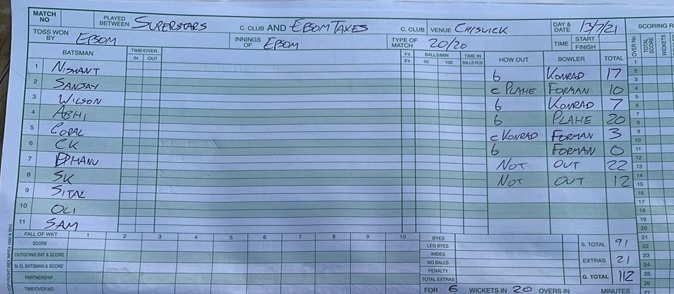 MATCH NO PLAYED BETWEEN SUPERSTARS C. CLUB AND EBOM TAXES C. CLUB VENUE CHISWICK DAY & DATE 13/7/21 SCORING R
TOSS WON BY EBSOM INNINGS OF EBSOM TYPE OF MATCH 20/20 TIME START FINISH
BATSMAN TIME/OVER IN OUT 4's 6's BALLS/MIN 50 100 TIME IN BALLS RCD HOW OUT BOWLER TOTAL OVER No. TOTAL SCORE WICKETS
1 NISHANT b KONRAD 17
2 SANJAY c PLAHE FORMAN 10
3 WILSON b KONRAD 7
4 ABHI b PLAHE 20
5 COPAL c KONRAD FORMAN 3
6 CK b FORMAN 0
7 NOT OUT 22
8 SK NOT OUT 12
9 SITAL
10 OLI
11 SAM
FALL OF WKT 1 2 3 4 5 6 7 8 9 10 BYES
SCORE LEG BYES B. TOTAL 91
OUTGOING BAT & SCORE WIDES
N. O. BATSMAN & SCORE NO BALLS EXTRAS 21
PARTNERSHIP PENALTY
TIME/OVER NO TOTAL EXTRAS G. TOTAL 112
FOR 6 WICKETS IN 20 OVERS IN MINUTES